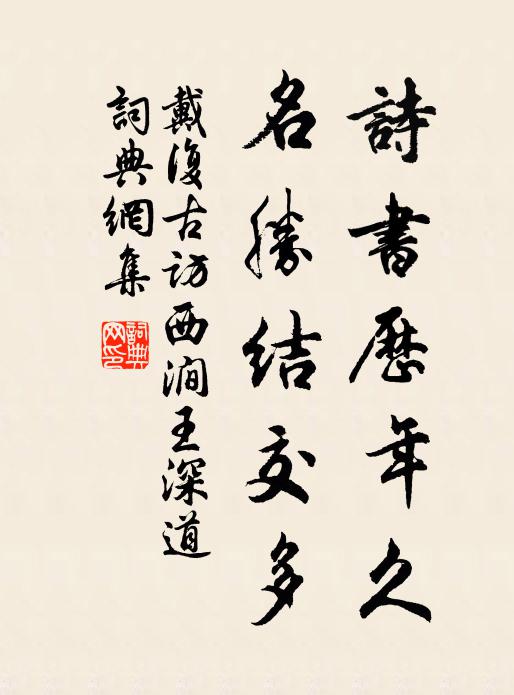 詩書歷年久
名勝結交多
戴復古訪西澗王深道
詞典網集
詞典网印